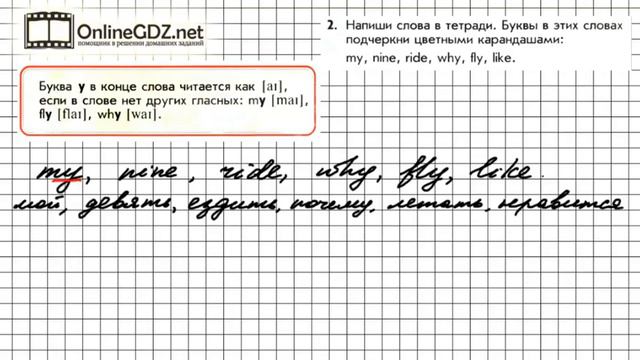 OnlineGDZ.net
помощник в решении домашних заданий
Буква y в конце слова читается как [aɪ],
если в слове нет других гласных: my [maɪ],
fly [flaɪ], why [waɪ].
2. Напиши слова в тетради. Буквы в этих словах
подчеркни цветными карандашами:
my, nine, ride, why, fly, like.
my, nine, ride, why, fly, like.
мой, девять, ездить, почему, летать, нравится